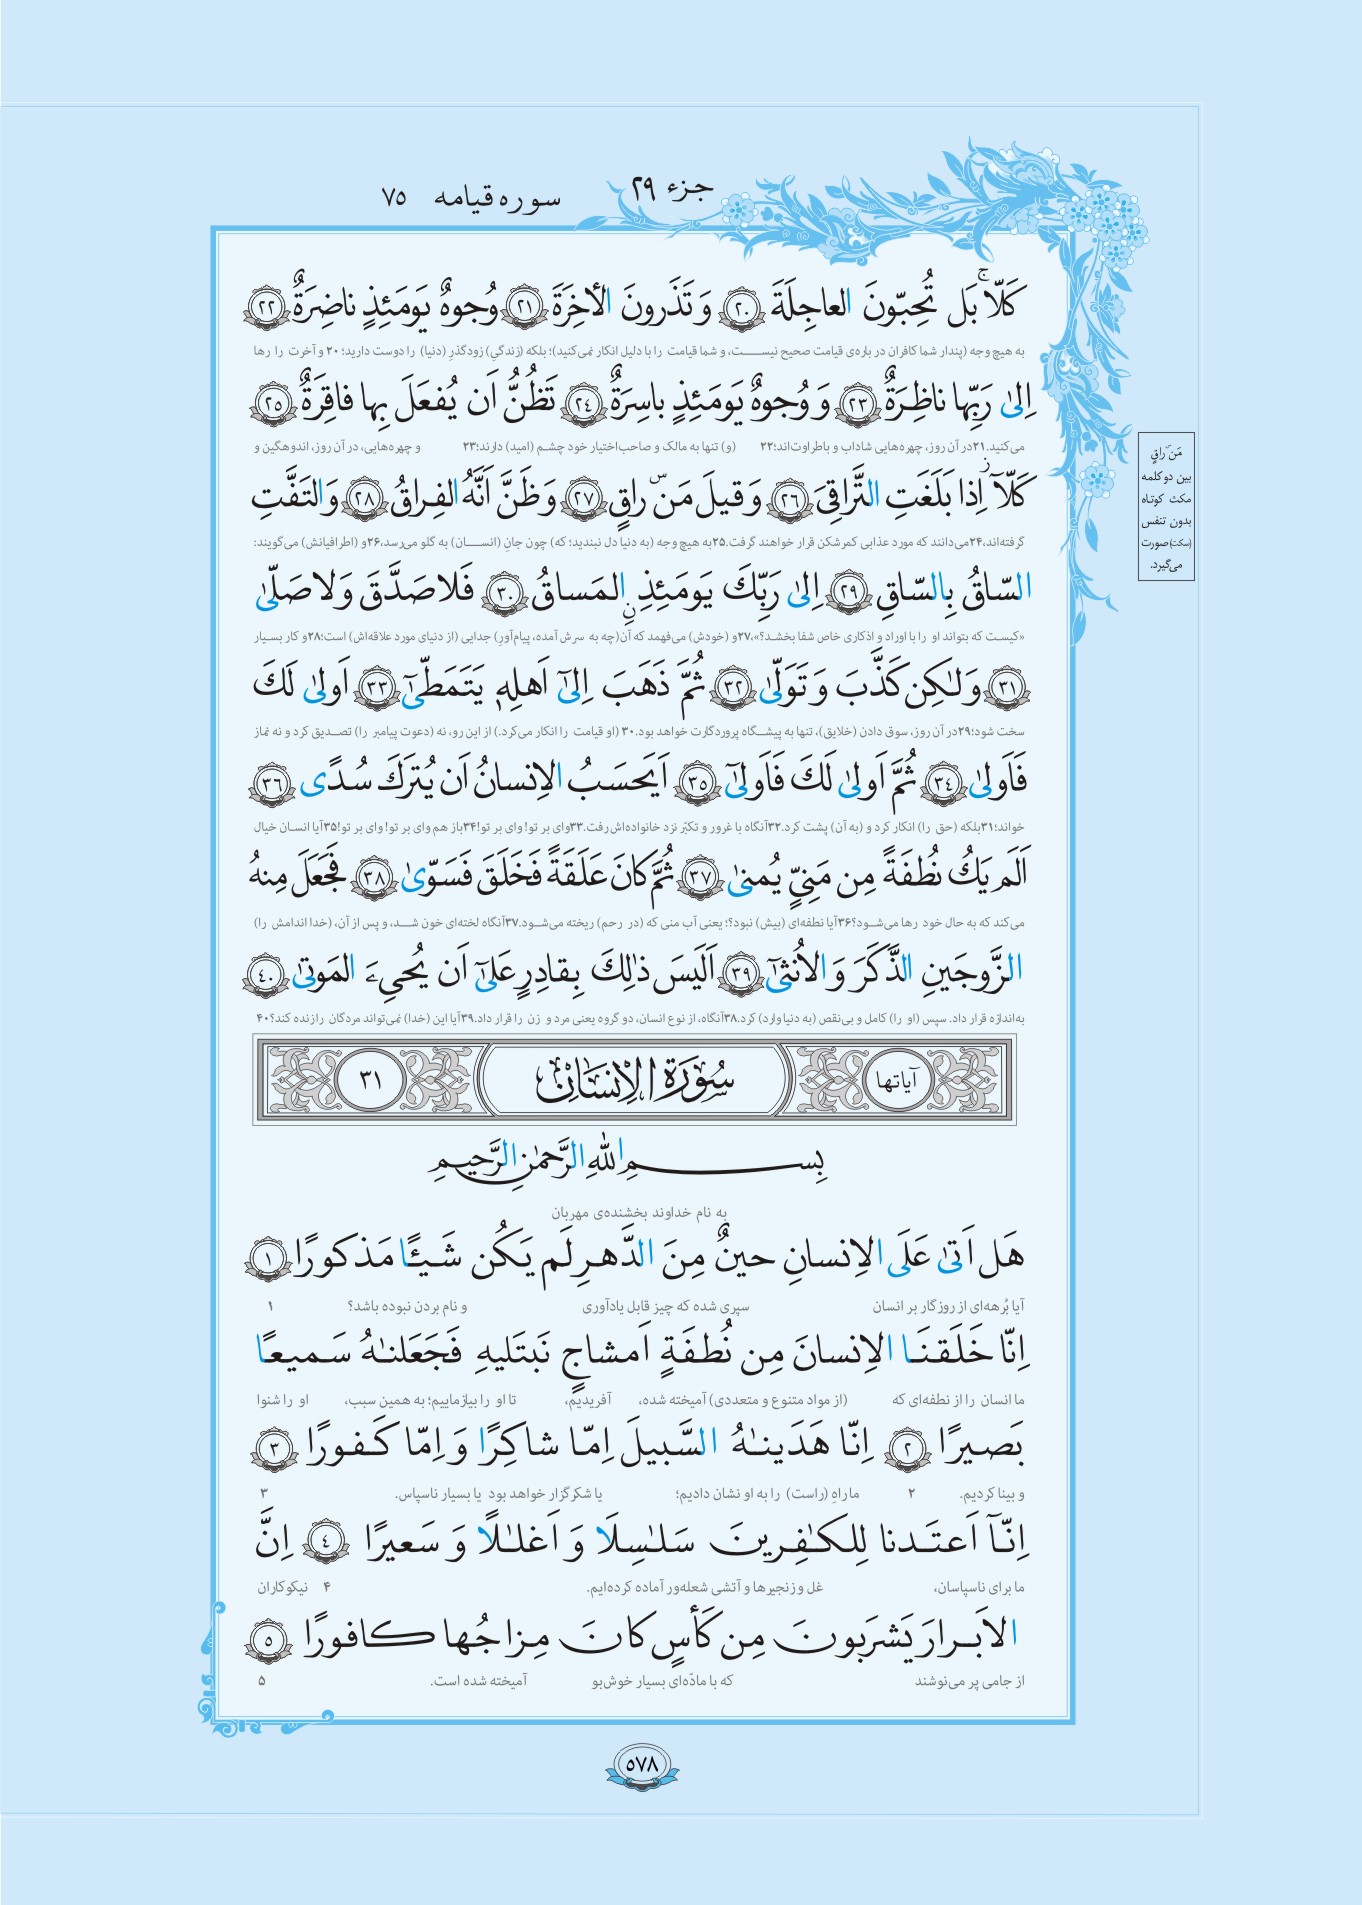 جزء ۲۹
سوره قیامه ۷۵
كَلّا ۖ بَل تُحِبّونَ العاجِلَةَ ﴿٢٠﴾ وَ تَذَرونَ الأخِرَةَ ﴿٢١﴾ وُجوهٌ يَومَئِذٍ ناضِرَةٌ ﴿٢٢﴾
به هیچ وجه (پندار شما کافران در باره‌ی قیامت صحیح نیست، و شما قیامت را با دلیل انکار نمی‌کنید)؛ بلکه (زندگیِ) زودگذرِ (دنیا) را دوست دارید؛ ۲۰ و آخرت را رها
اِلىٰ رَبِّها ناظِرَةٌ ﴿٢٣﴾ وَ وُجوهٌ يَومَئِذٍ باسِرَةٌ ﴿٢٤﴾ تَظُنُّ اَن يُفعَلَ بِها فاقِرَةٌ ﴿٢٥﴾
می‌کنید.۲۱ در آن روز، چهره‌هایی شاداب و باطراوت‌اند؛۲۲ (و) تنها به مالک و صاحب‌اختیار خود چشم (امید) دارند؛۲۳ و چهره‌هایی، در آن روز، اندوهگین و
كَلّآ اِذا بَلَغَتِ التَّراقِىَ ﴿٢٦﴾ وَ قيلَ مَن ۜ راقٍ ﴿٢٧﴾ وَ ظَنَّ اَنَّهُ الفِراقُ ﴿٢٨﴾ وَالتَفَّتِ
گرفته‌اند،۲۴ می‌دانند که مورد عذابی کمرشکن قرار خواهند گرفت.۲۵ به هیچ وجه (به دنیا دل نبندید؛ که) چون جانِ (انسان) به گلو می‌رسد،۲۶ و (اطرافیانش) می‌گویند:
السّاقُ بِالسّاقِ ﴿٢٩﴾ اِلىٰ رَبِّكَ يَومَئِذِ نِ المَساقُ ﴿٣٠﴾ فَلا صَدَّقَ وَ لا صَلّىٰ
«کیست که بتواند او را با اوراد و اذکاری خاص شفا بخشد؟»،۲۷ و (خودش) می‌فهمد که آن (چه به سرش آمده، پیام‌آورِ) جدایی (از دنیای مورد علاقه‌اش) است؛۲۸ و کار بسیار
﴿٣١﴾ وَ لٰكِن كَذَّبَ وَ تَوَلّىٰ ﴿٣٢﴾ ثُمَّ ذَهَبَ اِلىٰٓ اَهلِهٖ يَتَمَطّىٰٓ ﴿٣٣﴾ اَولىٰ لَكَ
سخت شود؛۲۹ در آن روز، سوق دادن (خلایق)، تنها به پیشگاه پروردگارت خواهد بود.۳۰ (او قیامت را انکار می‌کرد.) از این رو، نه (دعوت پیامبر را) تصدیق کرد و نه نماز
فَاَولىٰ ﴿٣٤﴾ ثُمَّ اَولىٰ لَكَ فَاَولىٰٓ ﴿٣٥﴾ اَيَحسَبُ الاِنسانُ اَن يُترَكَ سُدًى ﴿٣٦﴾
خواند؛۳۱ بلکه (حق را) انکار کرد و (به آن) پشت کرد.۳۲ آنگاه با غرور و تکبّر نزد خانواده‌اش رفت.۳۳ وای بر تو! وای بر تو!۳۴ باز هم وای بر تو! وای بر تو!۳۵ آیا انسان خیال
اَلَم يَكُ نُطفَةً مِن مَنِىٍّ يُمنىٰ ﴿٣٧﴾ ثُمَّ كانَ عَلَقَةً فَخَلَقَ فَسَوّىٰ ﴿٣٨﴾ فَجَعَلَ مِنهُ
می‌کند که به حال خود رها می‌شود؟۳۶ آیا نطفه‌ای (بیش) نبود؟؛ یعنی آب منی که (در رحم) ریخته می‌شود.۳۷ آنگاه لخته‌ای خون شد، و پس از آن، (خدا اندامش را)
الزَّوجَينِ الذَّكَرَ وَ الاُنثىٰٓ ﴿٣٩﴾ اَلَيسَ ذٰلِكَ بِقادِرٍ عَلىٰٓ اَن يُحيِىَ المَوتىٰ ﴿٤٠﴾
به‌اندازه قرار داد. سپس (او را) کامل و بی‌نقص (به دنیا وارد) کرد.۳۸ آنگاه، از نوع انسان، دو گروه یعنی مرد و زن را قرار داد.۳۹ آیا این (خدا) نمی‌تواند مردگان را زنده کند؟۴۰
آیاتها
سُورَةُ الاِنسَانِ
٣١
بِسمِ اللهِ الرَّحمٰنِ الرَّحيمِ
به نام خداوند بخشنده‌ی مهربان
هَل اَتىٰ عَلَى الاِنسانِ حينٌ مِنَ الدَّهرِ لَم يَكُن شَيـًٔا مَذكورًا ﴿١﴾
آیا بُرهه‌ای از روزگار بر انسان سپری شده که چیز قابل یادآوری و نام بردن نبوده باشد؟ ۱
اِنّا خَلَقنَا الاِنسانَ مِن نُطفَةٍ اَمشاجٍ نَبتَليهِ فَجَعَلنٰهُ سَميعًا
ما انسان را از نطفه‌ای که (از مواد متنوع و متعددی) آمیخته شده، آفریدیم، تا او را بیازماییم؛ به همین سبب، او را شنوا
بَصيرًا ﴿٢﴾ اِنّا هَدَينٰهُ السَّبيلَ اِمّا شاكِرًا وَ اِمّا كَفورًا ﴿٣﴾
و بینا کردیم. ۲ ما راهِ (راست) را به او نشان دادیم؛ یا شکرگزار خواهد بود یا بسیار ناسپاس. ۳
اِنّآ اَعتَدنا لِلكٰفِرينَ سَلٰسِلَا وَ اَغلٰلًا وَ سَعيرًا ﴿٤﴾ اِنَّ
ما برای ناسپاسان، غل و زنجیرها و آتشی شعله‌ور آماده کرده‌ایم. ۴ نیکوکاران
الاَبرارَ يَشرَبونَ مِن كَأسٍ كانَ مِزاجُها كافورًا ﴿٥﴾
از جامی پر می‌نوشند که با مادّه‌ای بسیار خوش‌بو آمیخته شده است. ۵
۵۷۸
مَن ۜ راقٍ
بین دو کلمه
مکث کوتاه
بدون تنفس
(سکت) صورت
می‌گیرد.